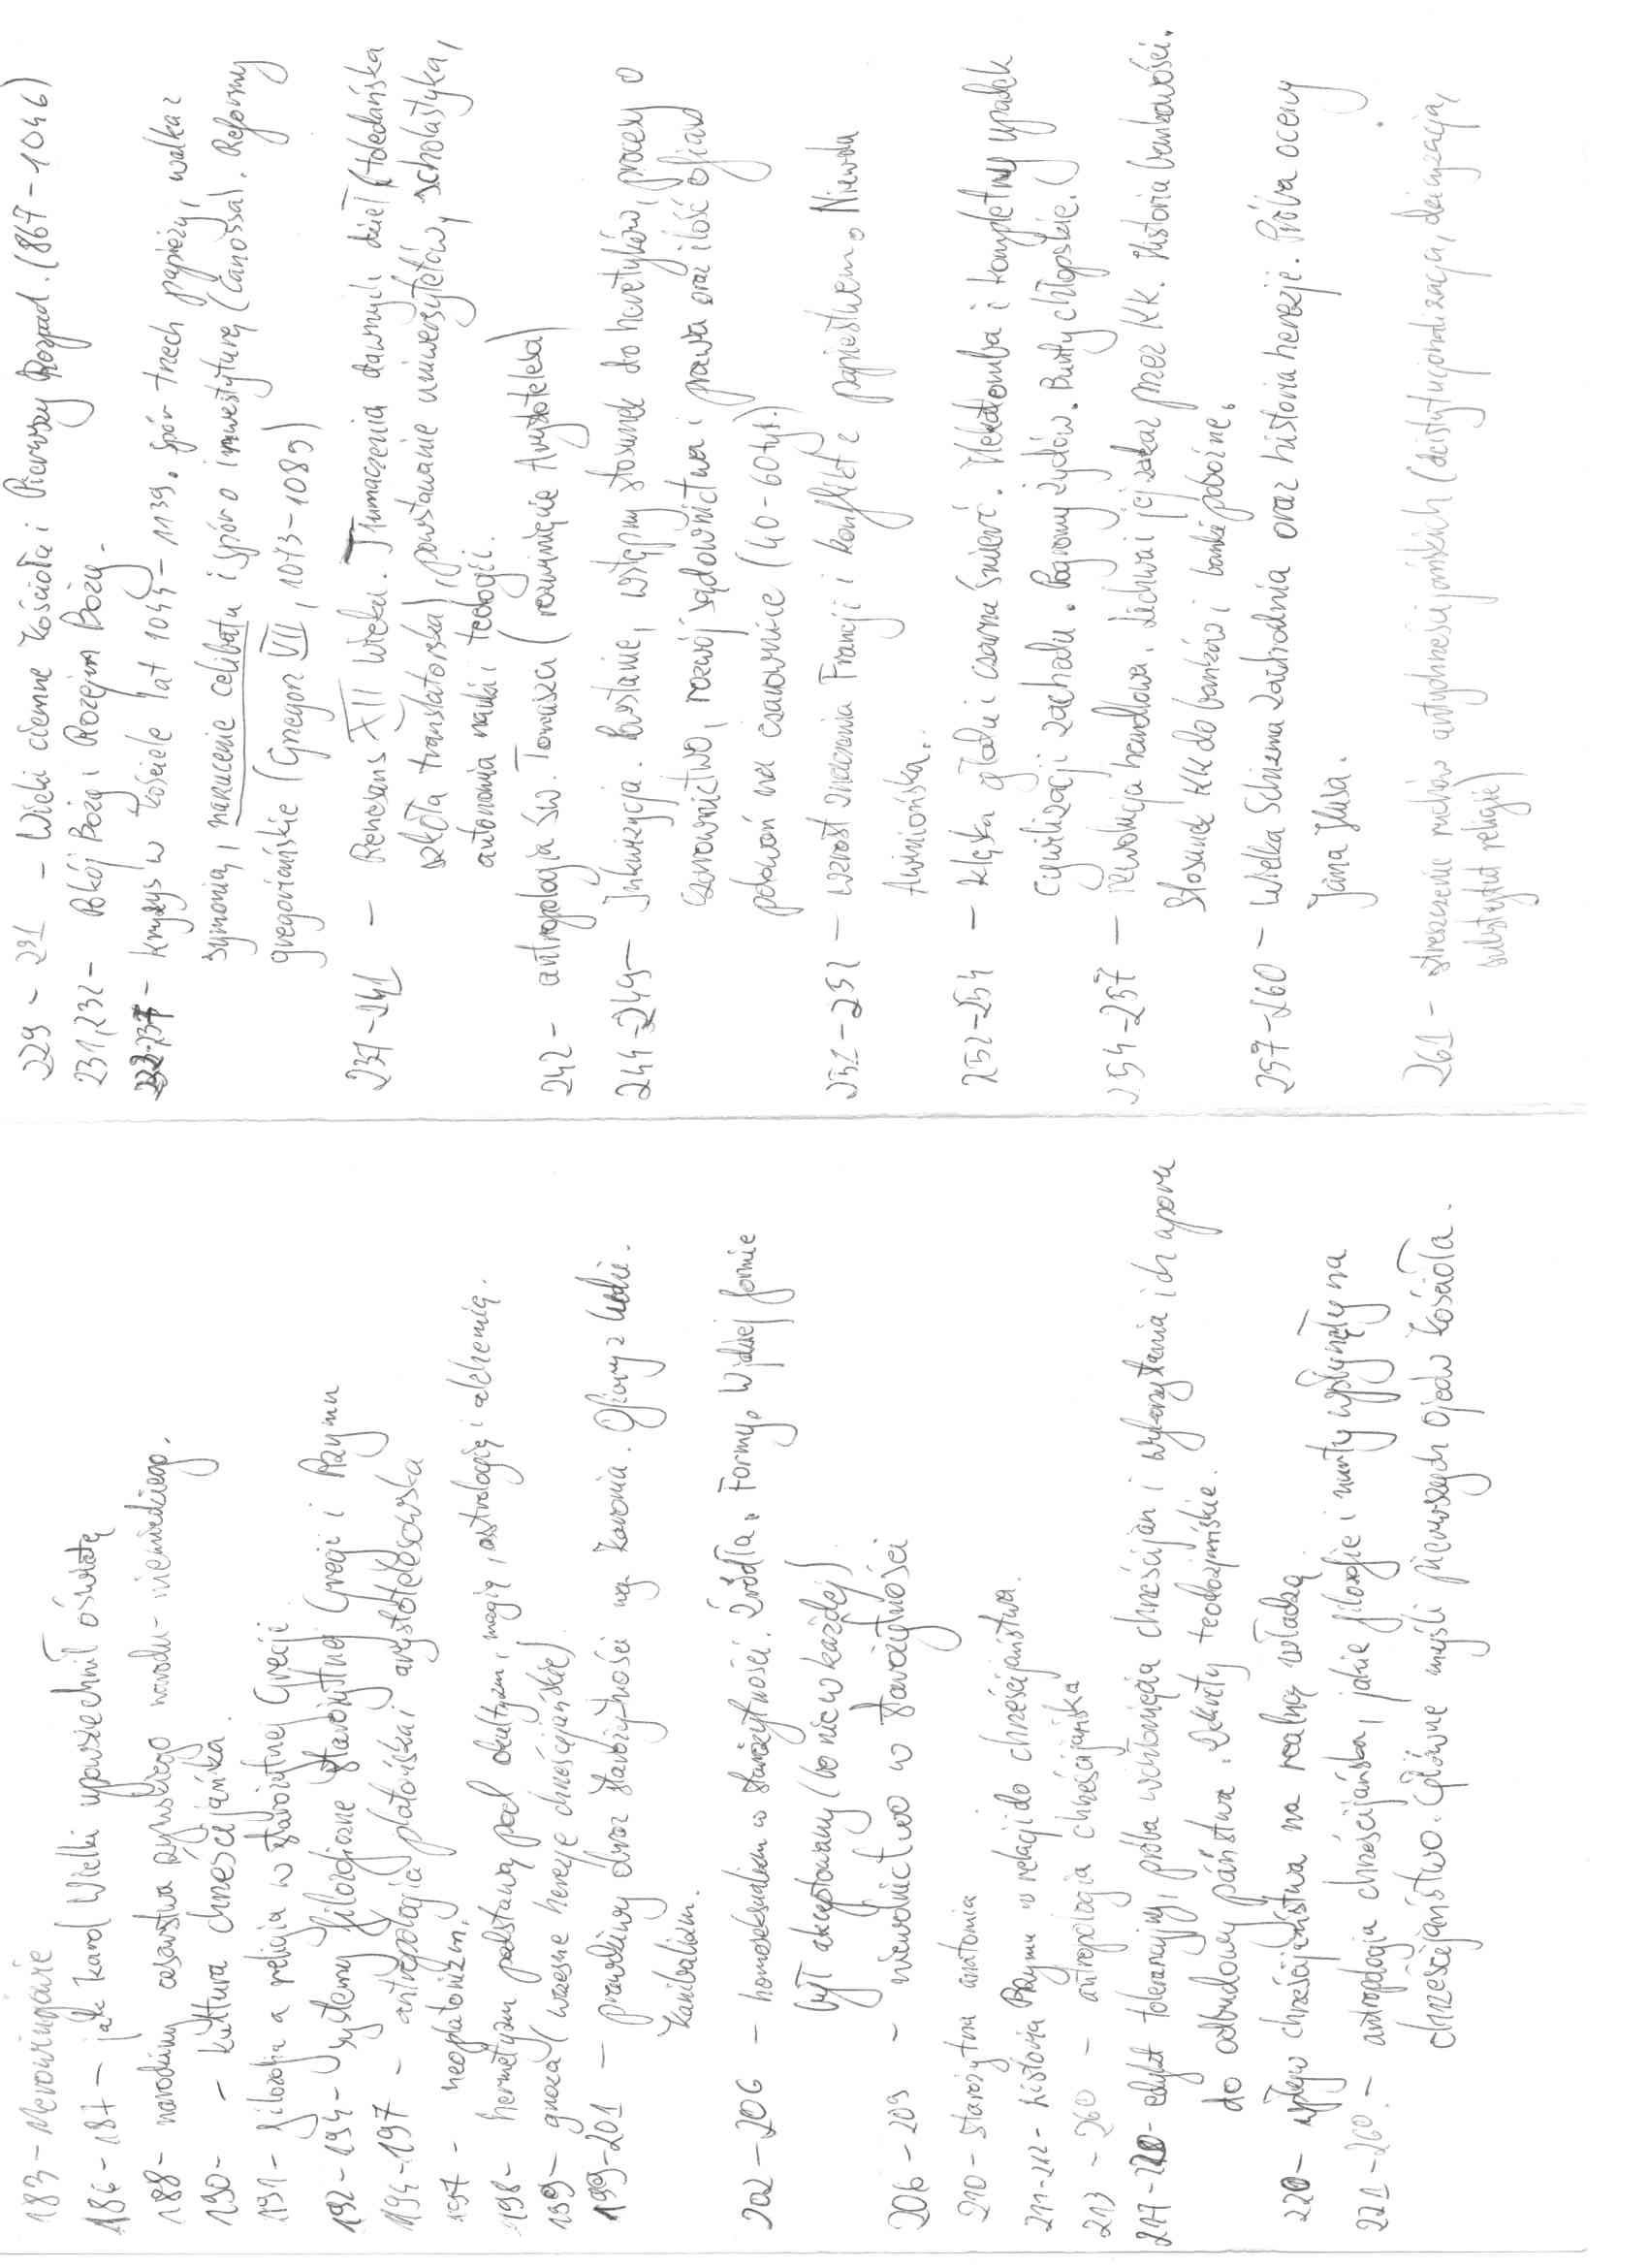 183 - Merowingowie
186 - 187 - jak Karol Wielki upowszechnił oświatę
188 - narodziny cesarstwa rzymskiego narodu - niemieckiego.
190 - - kultura chrześcijańska.
191 - filozofia a religia w starożytnej Grecji
192 - 194 - systemy filozoficzne starożytnej Grecji i Rzymu
194 - 197 - antropologia platońska i arystotelesowska
197 - neoplatonizm.
198 - hermetyzm podstawą pod okultyzm, magię, astrologię i alchemię.
199 - gnoza (wczesne herezje chrześcijańskie)
199 - 201 - prawdziwy obraz starożytności wg Kanonia. Ofiary z ludzi.
Kanibalizm.
202 - 206 - homoseksualizm w starożytności. Źródła. Formy. W jakiej formie
był akceptowany (bo nie w każdej)
206 - 209 - niewolnictwo w starożytności
210 - starożytna anatomia
211 - 212 - historia Rzymu w relacji do chrześcijaństwa.
213 - 260 - antropologia chrześcijańska
217 - 220 - edykt tolerancyjny, próba wchłonięcia chrześcijan i wykorzystania ich uporu
do odbudowy państwa. Dekrety teodozjańskie.
220 - wpływ chrześcijaństwa na realną władzę
221 - 260 - antropologia chrześcijańska, jakie filozofie i nurty wpłynęły na
chrześcijaństwo. Główne myśli pierwszych Ojców Kościoła.
229 - 231 - Wieki ciemne Kościoła i Pierwszy Rozpad. (867 - 1046)
231, 232 - Pokój Boży i Rozejm Boży.
232-237 - kryzys w Kościele lat 1044 - 1139. spór trzech papieży, walka z
symonią, narzucenie celibatu i spór o inwestyturę (Canossa). Reformy
gregoriańskie (Grzegorz VII, 1073 - 1085)
237 - 241 - Renesans XII wieku. Tłumaczenia dawnych dzieł (toledańska
szkoła translatorska), powstawanie uniwersytetów, scholastyka,
autonomia nauki i teologii.
242 - antropologia św. Tomasza (rozwinięcie Arystotelesa)
244 - 249 - Inkwizycja. Powstanie, wstępny stosunek do heretyków, procesy o
czarownictwo, rozwój sądownictwa i prawa oraz ilość ofiar
polowań na czarownice (40 - 60 tys.)
251 - 252 - wzrost znaczenia Francji i konflikt z papiestwem. Niewola
Awiniońska.
252 - 254 - klęska głodu i czarna śmierć. Hekatomba i kompletny upadek
cywilizacji zachodu. Pogromy żydów. Bunty chłopskie.
254 - 257 - rewolucja handlowa. Lichwa i jej zakaz przez KK. Historia bankowości.
Stosunek KK do banków i banki pobożne.
257 - 260 - Wielka Schizma zachodnia oraz historia herezji. Próba oceny
Jana Husa.
261 - streszczenie ruchów antychrześcijańskich (deinstytucjonalizacja, deizacja,
substytut religii)